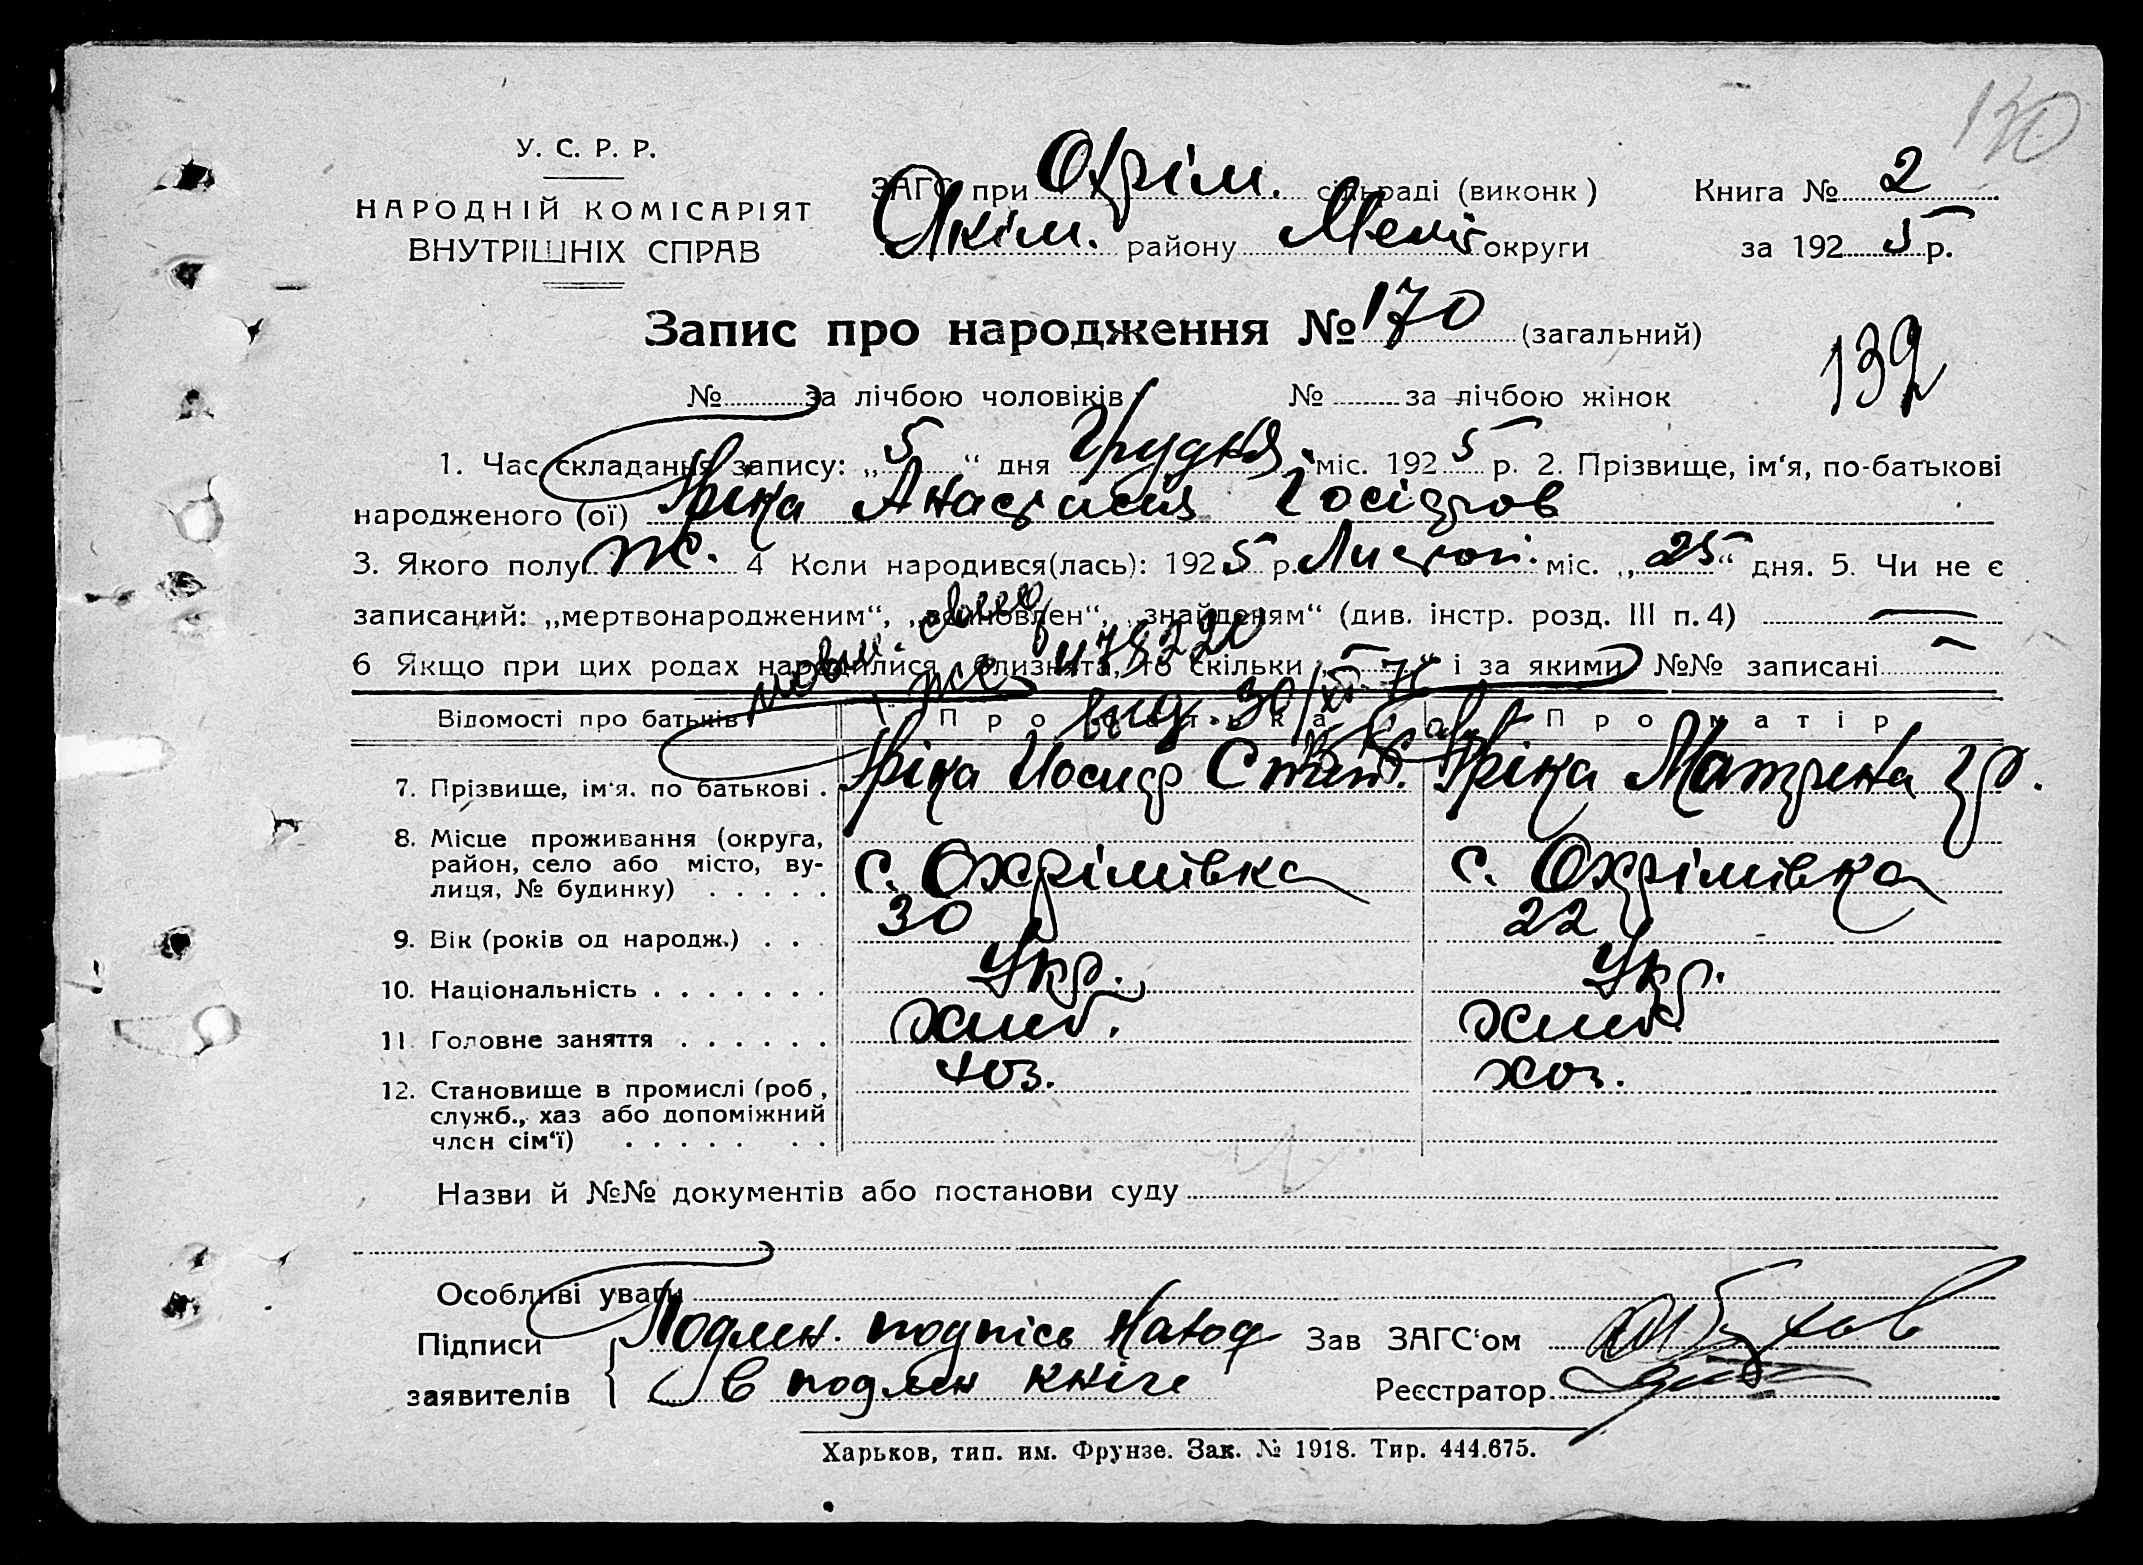 130
У. С. Р. Р.
НАРОДНІЙ КОМІСАРІЯТ
ВНУТРІШНІХ СПРАВ
ЗАГС при Охрім. сільраді (виконк)
Якім. району Меліт округи
Книга № 2
за 1925 р.
Запис про народження № 170 (загальний)
139
№ за лічбою чоловіків № за лічбою жінок
1. Час складання запису: „5“ дня Грудня міс. 1925 р. 2. Прізвище, ім‘я, по-батькові
народженого (ої) Яріка Анастасия Іосіфов
3. Якого полу ж. 4 Коли народився(лась): 1925 р. Листоп. міс. „25“ дня. 5. Чи не є
записаний: „мертвонародженим“, „всиновлен“, „знайденям“ (див. інстр. розд. III п. 4)
6 Якщо при цих родах народилися близнята, то скільки „ “ і за якими №№ записані
Відомості про батьків Про батька Про матір
7. Прізвище, ім‘я, по батькові . Яріка Иосиф Яріка Матрена Гр.
8. Місце проживання (округа,
район, село або місто, ву-
лиця, № будинку) . . . . . с. Охрімівка с. Охрімівка
9. Вік (років од народж.) . . . 30 22
10. Національність . . . . . . . Укр. Укр.
11. Головне заняття . . . . . . хліб. хліб.
12. Становище в промислі (роб.,
служб., хаз або допоміжний
член сім‘ї) . . . . . . . хоз. хоз.
Назви й №№ документів або постанови суду
Особливі уваги
Підписи
заявителів
Подлен. подпісь Наход
в подлен кніге
Зав ЗАГС‘ом
Реєстратор
Харьков, тип. им. Фрунзе. Зак. № 1918. Тир. 444.675.